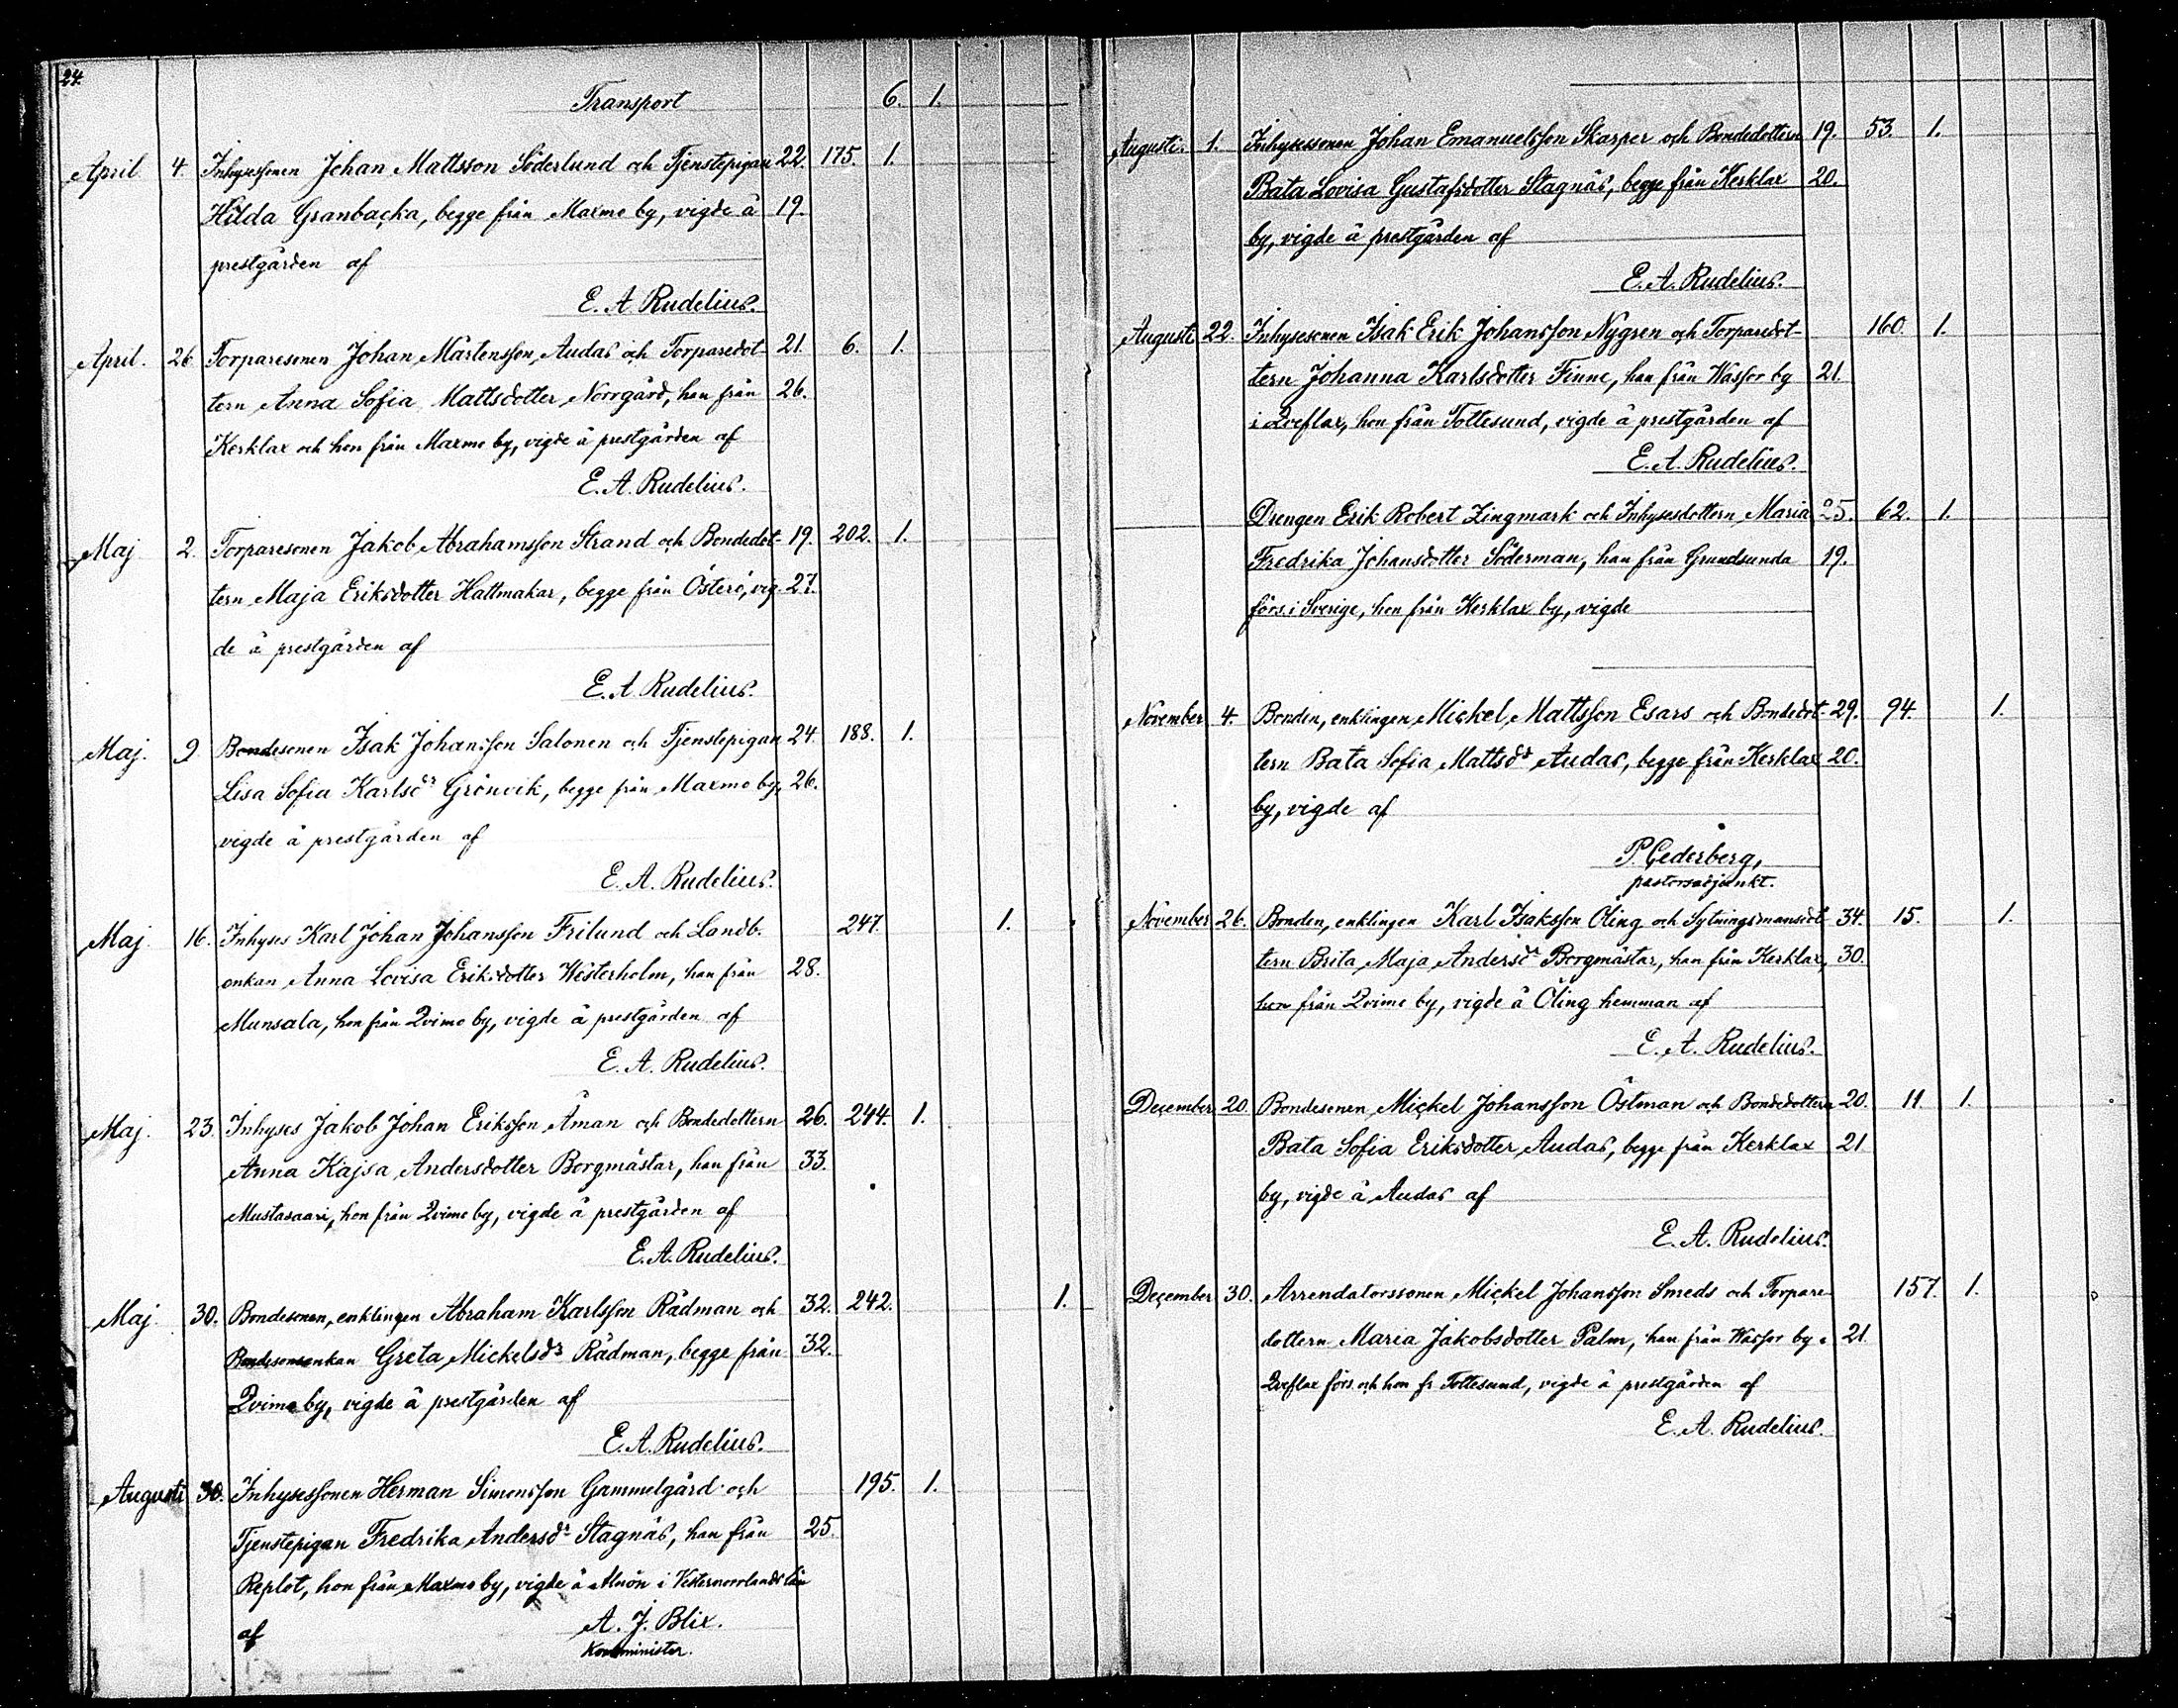 24.
Transport 6. 1.
April 4. Inhysessonen Johan Mattsson Söderlund och Tjenstepigan 22. 175. 1.
Hilda Granbacka, begge från Maxmo by, vigde å 19.
prestgården af
E. A. Rudelius.
April. 26 Torparesonen Johan Mårtensson Audas och Torparedot- 21. 6. 1.
tern Anna Sofia Mattsdotter Norrgård, han från 26.
Kerklax och hon från Maxmo by, vigde å prestgården af
E. A. Rudelius.
Maj 2. Torparesonen Jakob Abrahamsson Strand och Bondedot- 19. 202. 1.
tern Maja Eriksdotter Hattmakar, begge från Österö, vig- 27.
de å prestgården af
E. A. Rudelius.
Maj. 9. Bondesonen Isak Johansson Salonen och Tjenstepigan 24. 188. 1.
Lisa Sofia Karlsdr Grönvik, begge från Maxmo by, 26.
vigde å prestgården af
E. A. Rudelius.
Maj. 16. Inhyses Karl Johan Johansson Frilund och Landb. 247. 1.
enkan Anna Lovisa Eriksdotter Westerholm, han från 28.
Munsala, hon från Qvimo by, vigde å prestgården af
E. A. Rudelius.
Maj. 23. Inhyses Jakob Johan Eriksson Åman och Bondedottern 26. 244. 1.
Anna Kajsa Andersdotter Borgmästar, han från 33.
Mustasaari, hon från Qvimo by, vigde å prestgården af
E. A. Rudelius.
Maj. 30. Bondesonen, enklingen Abraham Karlsson Rådman och 32. 242. 1.
Bondesonsenkan Greta Mickelsdr Rådman, begge från 32.
Qvimo by, vigde å prestgården af
E. A. Rudelius.
Augusti 30. Inhysessonen Herman Simonsson Gammelgård och 195. 1.
Tjenstepigan Fredrika Andersdr Stagnäs, han från 25.
Replot, hon från Maxmo by, vigde å Alnön i Vesternorrlands län
af A. J. Blix.
Komminister.
Augusti. 1. Inhysessonen Johan Emanuelsson Skarper och Bondedottern 19. 53. 1.
Bata Lovisa Gustafsdotter Stagnäs, begge från Kerklax 20.
by, vigde å prestgården af
E. A. Rudelius.
Augusti 22. Inhysesonen Isak Erik Johansson Nygren och Torparedot- 160. 1.
tern Johanna Karlsdotter Finne, han från Wassor by 21.
i Qveflax, hon från Tottesund, vigde å prestgården af
E. A. Rudelius.
Drengen Erik Robert Zingmark och Inhysesdottern Maria 25. 62. 1.
Fredrika Johansdotter Söderman, han från Grundsunda 19.
förs. i Sverige, hon från Kerklax by, vigde
November 4. Bonden, enklingen Mickel Mattsson Esars och Bondedot- 29. 94. 1.
tern Bata Sofia Mattsdr Audas, begge från Kerklax 20.
by, vigde af
P. Cederberg,
pastorsadjunkt.
November 26. Bonden, enklingen Karl Isaksson Öling och Sytningsmansdot- 34. 15. 1.
tern Brita Maja Andersdr Borgmästar, han från Kerklax, 30.
hon från Qvimo by, vigde å Öling hemman af
E. A. Rudelius.
December 20. Bondesonen Mickel Johansson Östman och Bondedottern 20. 11. 1.
Bata Sofia Eriksdotter Audas, begge från Kerklax 21.
by, vigde å Audas af
E. A. Rudelius.
December 30. Arrendatorssonen Mickel Johansson Smeds och Torpare- 157. 1.
dottern Maria Jakobsdotter Palm, han från Wassor by i 21.
Qveflax förs. och hon fr. Tottesund, vigde å prestgården af
E. A. Rudelius.